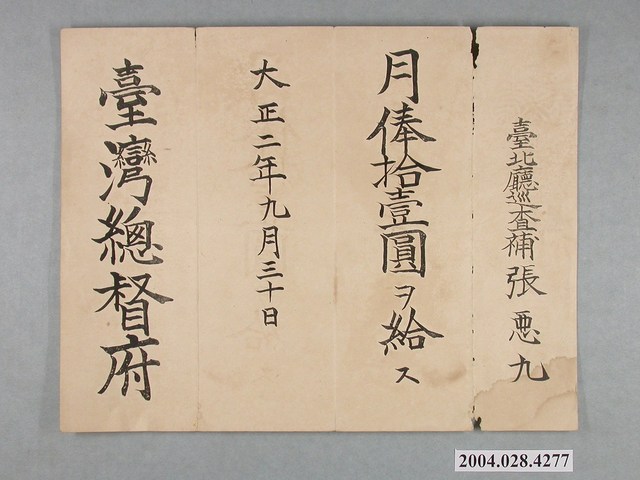 臺北廳巡查補張悪九
月俸拾壹圓ヲ給ス
大正二年九月三十日
臺灣總督府
2004.028.4277